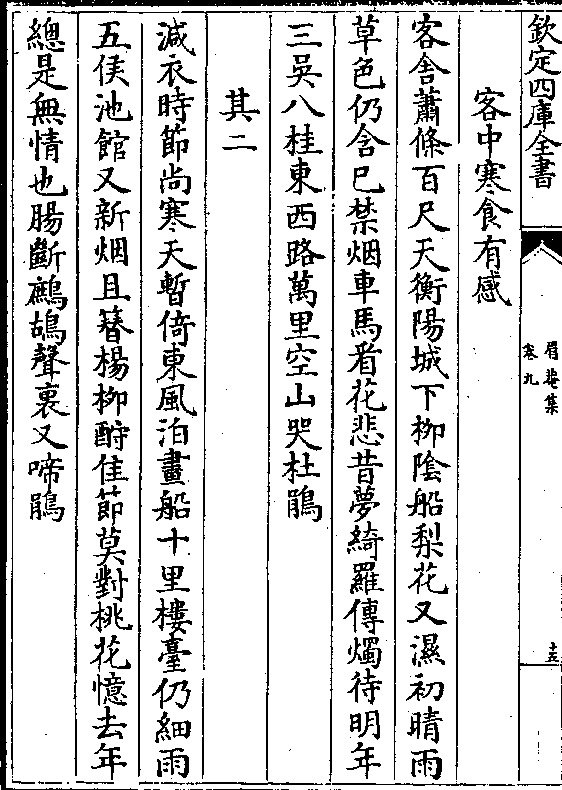 欽定四庫全書
眉菴集
卷九
十五
客中寒食有感
客舎蕭條百尺天衡陽城下栁陰船梨花又濕初晴雨
草色仍含已禁烟車馬看花悲昔夢綺羅傳燭待明年
三吳八桂東西路萬里空山哭杜鵑
其二
減衣時節尚寒天暫倚東風泊畫船十里樓臺仍細雨
五侯池館又新烟且簮楊栁酧佳節莫對桃花憶去年
總是無情也腸斷鷓鴣聲裏又啼鵑